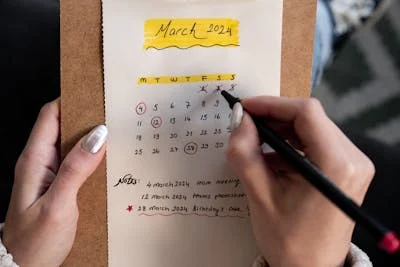 March 2024
M T W T F S S
4 5 6 7 8 9
11 12 13 14 15 16
18 19 20 21 22 23
25 26 27 28 29 30
Notes:
4 March 2024 meeting
12 March 2024
28 March 2024 Birthday's